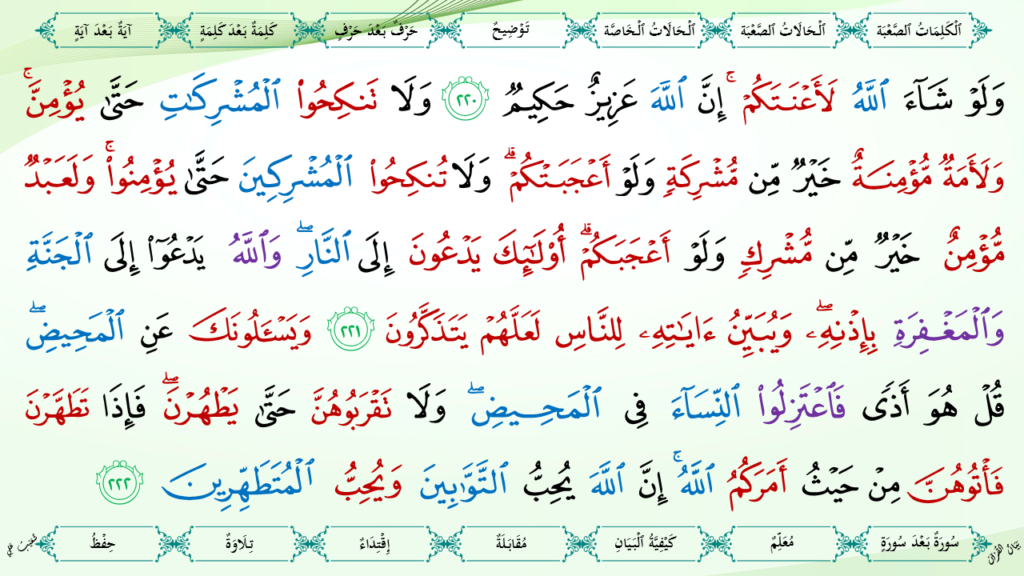 اَلْكَلِمَاتُ الصَّعْبَة اَلْحَالَاتُ الصَّعْبَة اَلْحَالَاتُ الْخَاصَّة تَوْضِيحٌ حَرْفٌ بَعْدَ حَرْفٍ كَلِمَةٌ بَعْدَ كَلِمَةٍ آيَةٌ بَعْدَ آيَةٍ
وَلَوْ شَآءَ ٱللَّهُ لَأَعْنَتَكُمْ ۚ إِنَّ ٱللَّهَ عَزِيزٌ حَكِيمٌ ٢٢٠ وَلَا تَنكِحُوا۟ ٱلْمُشْرِكَٰتِ حَتَّىٰ يُؤْمِنَّ ۚ
وَلَأَمَةٌ مُّؤْمِنَةٌ خَيْرٌ مِّن مُّشْرِكَةٍ وَلَوْ أَعْجَبَتْكُمْ ۗ وَلَا تُنكِحُوا۟ ٱلْمُشْرِكِينَ حَتَّىٰ يُؤْمِنُوا۟ ۚ وَلَعَبْدٌ
مُّؤْمِنٌ خَيْرٌ مِّن مُّشْرِكٍ وَلَوْ أَعْجَبَكُمْ ۗ أُو۟لَٰٓئِكَ يَدْعُونَ إِلَى ٱلنَّارِ ۖ وَٱللَّهُ يَدْعُوٓا۟ إِلَى ٱلْجَنَّةِ
وَٱلْمَغْفِرَةِ بِإِذْنِهِۦ ۖ وَيُبَيِّنُ ءَايَٰتِهِۦ لِلنَّاسِ لَعَلَّهُمْ يَتَذَكَّرُونَ ٢٢١ وَيَسْـَٔلُونَكَ عَنِ ٱلْمَحِيضِ ۖ
قُلْ هُوَ أَذًى فَٱعْتَزِلُوا۟ ٱلنِّسَآءَ فِى ٱلْمَحِيضِ ۖ وَلَا تَقْرَبُوهُنَّ حَتَّىٰ يَطْهُرْنَ ۖ فَإِذَا تَطَهَّرْنَ
فَأْتُوهُنَّ مِنْ حَيْثُ أَمَرَكُمُ ٱللَّهُ ۚ إِنَّ ٱللَّهَ يُحِبُّ ٱلتَّوَّٰبِينَ وَيُحِبُّ ٱلْمُتَطَهِّرِينَ ٢٢٢
بَيَانُ الْقُرْآنِ سُورَةٌ بَعْدَ سُورَةٍ مُعَلِّمٌ كَيْفِيَّةُ الْبَيَانِ مُقَابَلَةٌ إِقْتِدَاءٌ تِلَاوَةٌ حِفْظٌ